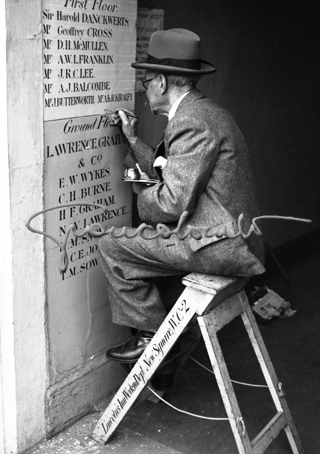 First Floor.
Sir Harold DANCKWERTS
Mr Geoffrey CROSS
Mr D.H.McMULLEN
Mr A.W.L.FRANKLIN
Mr J.R.C.LEE.
Mr A.J.BALCOMBE
Mr J.BUTTERWORTH. Mr A.K.R.KIRALFY
Ground Flo
LAWRENCE GRAHA
& CO
E.W.WYKES
C.H.BURNE.
H.F.GRAHAM
LAWRENCE
C.E.JO
T.M.SOW
Lincoln's Inn Works Dept. New Square. W.C.2